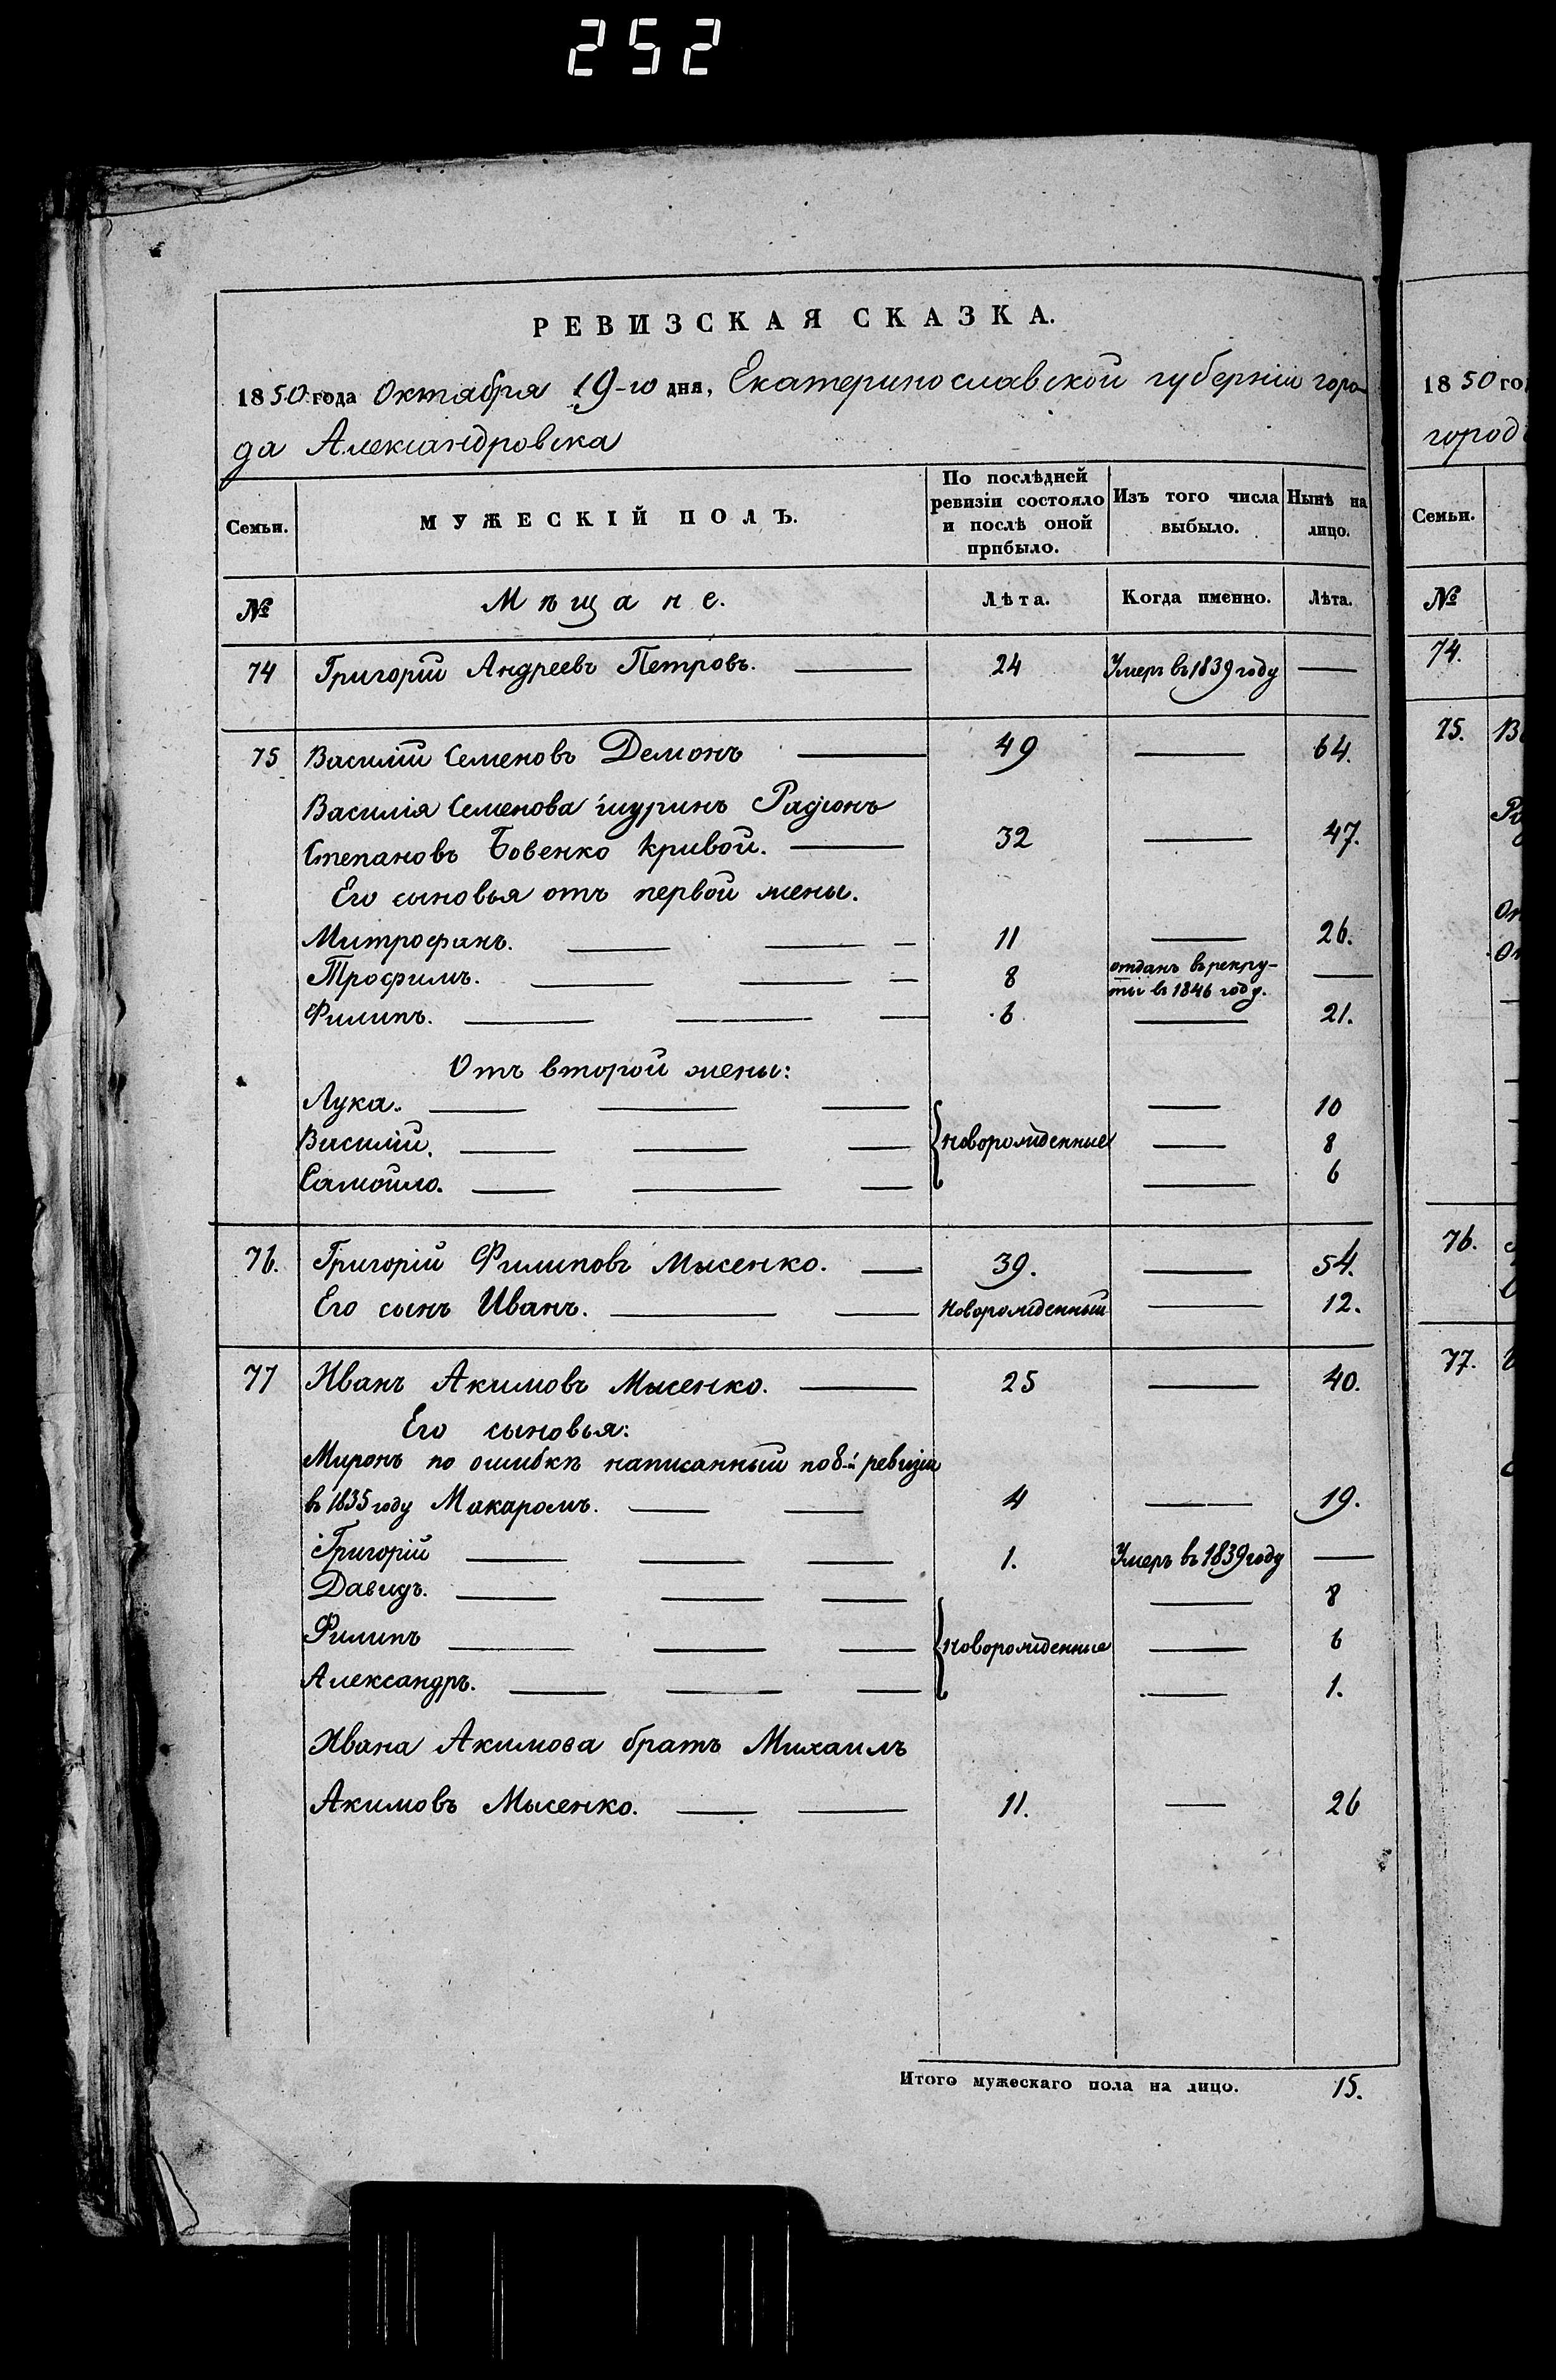 252
РЕВИЗСКАЯ СКАЗКА.
1850 года Октября 19-го дня, Екатеринославской губерніи горо-
да Александровска
Семьи. МУЖЕСКІЙ ПОЛЪ. По послѣдней ревизіи состояло и послѣ оной прибыло. Изъ того числа выбыло. Нынѣ на лицо.
№ Мѣщане. Лѣта. Когда именно. Лѣта.
74 Григорій Андреевъ Петровъ. 24 Умеръ въ 1839 году
75 Василій Семеновъ Демонъ 49 64.
Василія Семенова шуринъ Радіонъ
Степановъ Бовенко Кривой. 32 47.
Его сыновья отъ первой жены.
Митрофанъ. 11 26.
Трофимъ. 8 отданъ въ рекру-
ты въ 1846 году.
Филипъ. 6 21.
Отъ второй жены:
Лука. 10
Василій. новорожденные 8
Самойло. 6
76. Григорій Филиповъ Мысенко. 39. 54.
Его сынъ Иванъ. Новорожденный 12.
77 Иванъ Акимовъ Мысенко. 25 40.
Его сыновья:
Миронъ по ошибкѣ написанный по 8-й ревизіи
въ 1835 году Макаромъ. 4 19.
Григорій 1. Умеръ въ 1839 году
Давидъ. 8
Филипъ новорожденные 6
Александръ. 1.
Ивана Акимова братъ Михаилъ
Акимовъ Мысенко. 11. 26
Итого мужескаго пола на лицо. 15.
1850 го
город
Семьи.
№
74.
75.
76.
77.